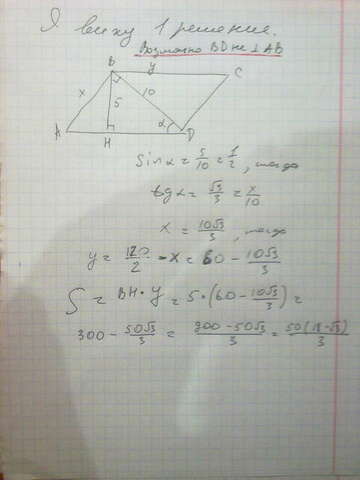 Я вижу 1 решение.
Возможно BD не ⊥ AB
B y C
x 5 10
A H α D
sin α = 5/10 = 1/2, тогда
tg α = √3/3 = x/10
x = 10√3/3, тогда
y = 120/2 - x = 60 - 10√3/3
S = BH · y = 5 · (60 - 10√3/3) =
300 - 50√3/3 = 900 - 50√3/3 = 50(18 - √3)/3